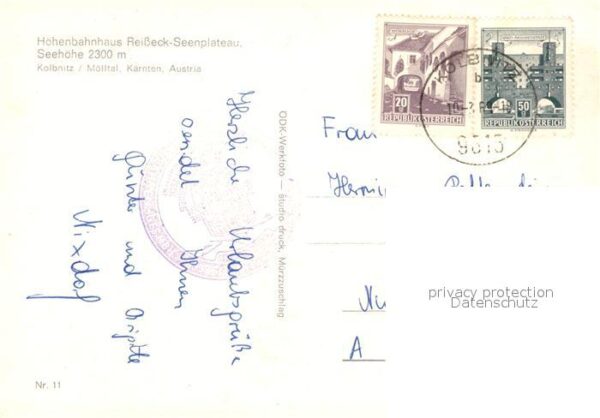 Höhenbahnhaus Reißeck-Seenplateau.
Seehöhe 2300 m
Kolbnitz / Mölltal, Kärnten, Austria
Herzliche Urlaubsgrüße
sendet Ihnen
Günter und Brigitte
Nixdorf
Nr. 11
ODK-Werkfoto — studio druck, Mürzzuschlag
20
REPUBLIK ÖSTERREICH
50
REPUBLIK ÖSTERREICH
KOLBNITZ
9815
Frau
A
privacy protection
Datenschutz